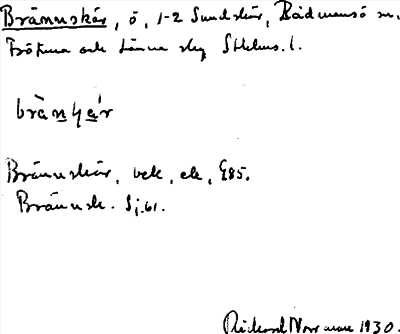 Brännskär, ö, 1-2 Sundskär, Rådmansö sn.
Frötuna och Länna skg Sthlms. l.
brà̀nʂą́r
Brännskär, bek, ek, E85.
Brännsk. Sj.61.
Rickard Norrman 1930.